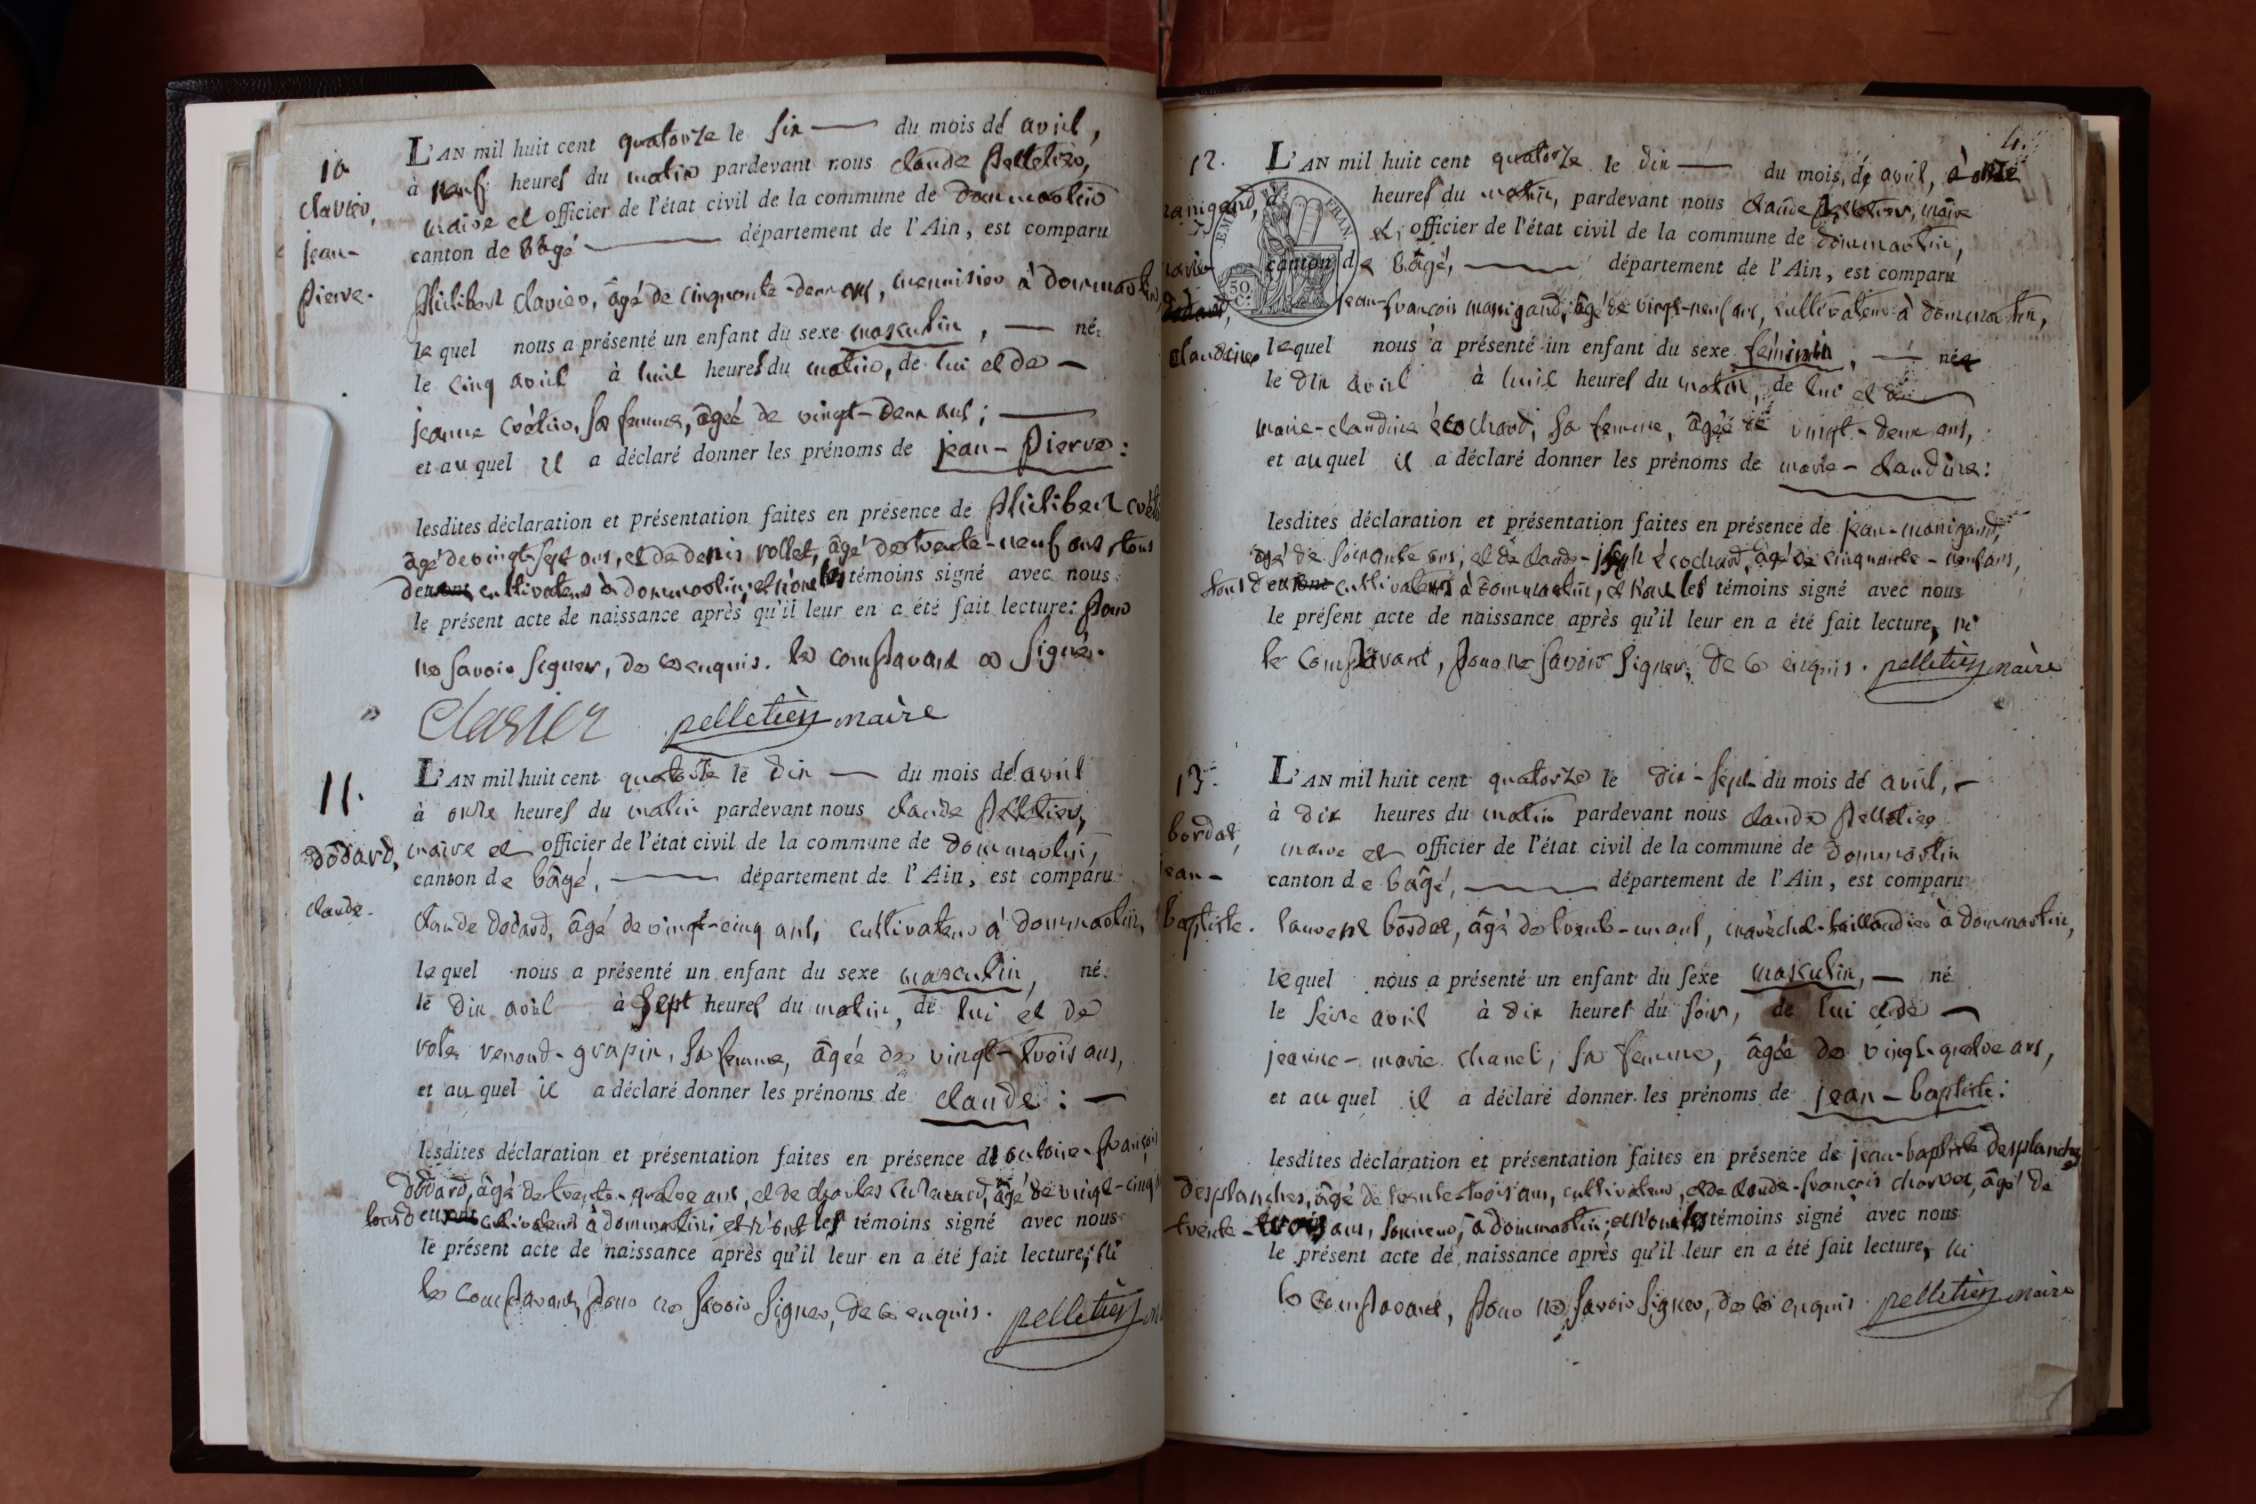 10
clavier,
jean-
pierre.
L'AN mil huit cent quatorze le six du mois de avril,
à neuf heures du matin pardevant nous claude pelletier,
maire et officier de l'état civil de la commune de dommartin
canton de Bâgé département de l'Ain, est comparu
philibert clavier, âgé de cinquante-deux ans, menuisier à dommartin,
lequel nous a présenté un enfant du sexe masculin, né
le cinq avril à huit heures du matin, de lui et de
jeanne crétin, sa femme, âgée de vingt-deux ans;
et auquel il a déclaré donner les prénoms de jean-pierre:
lesdites déclaration et présentation faites en présence de philibert
âgé de vingt-sept ans, et de denis rollet, âgé de trente-neuf ans, tous
deux cultivateurs à dommartin; et n'ont les témoins signé avec nous
le présent acte de naissance après qu'il leur en a été fait lecture: pour
ne savoir signer, de ce enquis. le comparant a signé.
clavier pelletier maire
11.
dodard,
claude.
L'AN mil huit cent quatorze le dix du mois de avril
à onze heures du matin pardevant nous claude pelletier,
maire et officier de l'état civil de la commune de dommartin,
canton de bâgé, département de l'Ain, est comparu
claude dodard, âgé de vingt-cinq ans, cultivateur à dommartin,
lequel nous a présenté un enfant du sexe masculin, né
le dix avril à sept heures du matin, de lui et de
renoud-grapin, sa femme, âgée de vingt-trois ans,
et auquel il a déclaré donner les prénoms de claude:
lesdites déclaration et présentation faites en présence de antoine-françois
dodard, âgé de trente-quatre ans, et de charles âgé de vingt-cinq
tous deux cultivateurs à dommartin; et n'ont les témoins signé avec nous
le présent acte de naissance après qu'il leur en a été fait lecture, ni
le comparant, pour ne savoir signer, de ce enquis. pelletier
4.
12.
manigand,
marie-
claudine
EMP. FRAN.
50 C.
L'AN mil huit cent quatorze le dix du mois de avril, à onze
heures du matin, pardevant nous claude pelletier, maire
et officier de l'état civil de la commune de dommartin,
canton de bâgé, département de l'Ain, est comparu
jean-françois manigand, âgé de vingt-neuf ans, cultivateur à dommartin,
lequel nous a présenté un enfant du sexe féminin, née
le dix avril à huit heures du matin, de lui et de
marie-claudine écochard, sa femme, âgée de vingt-deux ans,
et auquel il a déclaré donner les prénoms de marie-claudine:
lesdites déclaration et présentation faites en présence de jean-manigand,
âgé de soixante ans, et de claude-joseph écochard, âgé de cinquante-neuf ans,
tous deux cultivateurs à dommartin, et n'ont les témoins signé avec nous
le présent acte de naissance après qu'il leur en a été fait lecture, ni
le comparant, pour ne savoir signer, de ce enquis. pelletier maire
13.
bordat,
jean-
baptiste.
L'AN mil huit cent quatorze le dix-sept du mois de avril,
à dix heures du matin pardevant nous claude pelletier
maire et officier de l'état civil de la commune de dommartin
canton de bâgé, département de l'Ain, est comparu
laurent bordat, âgé de trente-un ans, maréchal-taillandier à dommartin,
lequel nous a présenté un enfant du sexe masculin, né
le seize avril à dix heures du soir, de lui et de
jeanne-marie chanel, sa femme, âgée de vingt-quatre ans,
et auquel il a déclaré donner les prénoms de jean-baptiste:
lesdites déclaration et présentation faites en présence de jean-baptiste desplanches
desplanches, âgé de trente-trois ans, cultivateur, et de claude-françois charvet, âgé de
trente-trois ans, à dommartin; et n'ont les témoins signé avec nous
le présent acte de naissance après qu'il leur en a été fait lecture, ni
le comparant, pour ne savoir signer, de ce enquis. pelletier maire